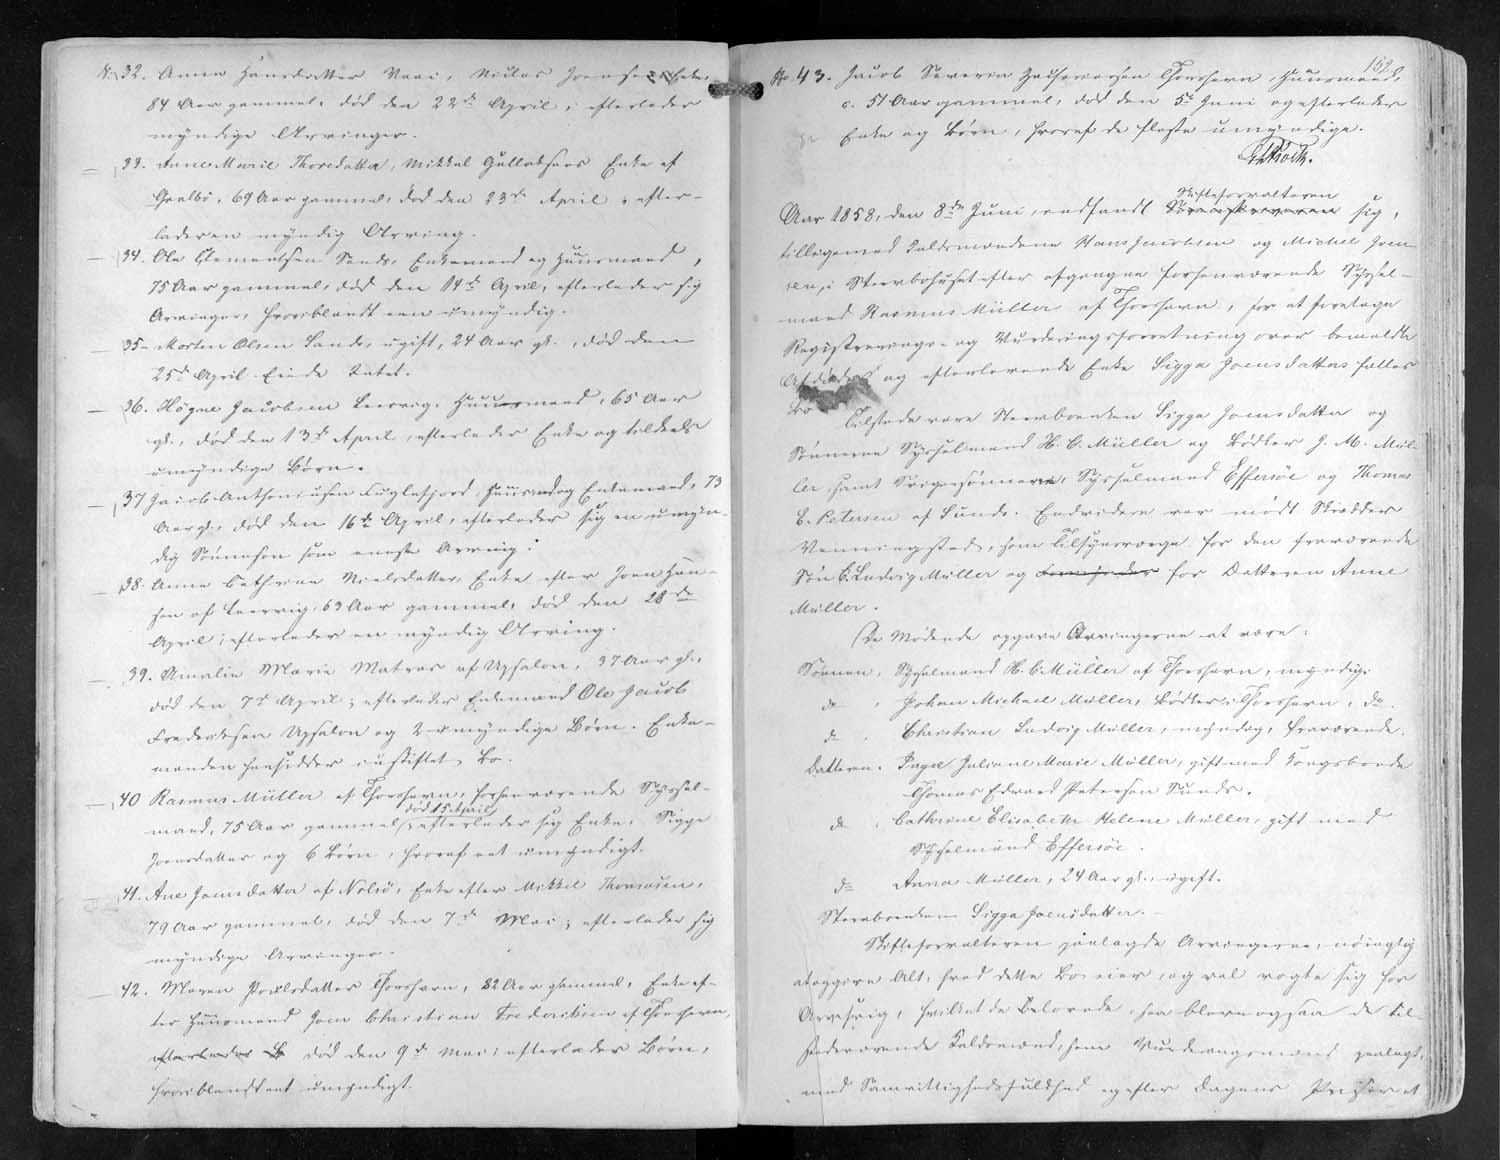 No 32. Anna Hansdatter Waai, Niclas Joensens Enke,
84 Aar gammel, død den 22de April; efterlader
myndige Arvinger.
— 33. Anne Marie Thoredatter, Mikkel Gullaksens Enke af
69 Aar gammel, død den 23de April; efter-
lader en myndig Arving.
— 34. Ole Clementsen Sands, Enkemand og Huusmand,
75 Aar gammel, død den 14de April, efterlader sig
Arvinger, hvoriblandt een umyndig.
— 35 – Morten Olsen Sands, ugift, 24 Aar gl., død den
25de April.
— 36. Høgne Jacobsen Leervig, Huusmand, 65 Aar
gl., død den 13de April, efterlader Enke og tildeels
umyndige Børn.
— 37 Jacob Anthoniusen Fuglefjord, Huusmand og Enkemand, 73
Aar gl., død den 16de April, efterlader sig en umyn-
dig Sønnesøn som eneste Arving.
— 38. Anna Cathrine Nielsdatter, Enke efter Joen Han-
sen af Leervig, 63 Aar gammel, død den 28de
April; efterlader en myndig Arving.
— 39. Amalia Maria Matras af Upsalon, 37 Aar gl.,
død den 7de April; efterlader Enkemand Ole Jacob
Frederiksen Upsalon og 2 umyndige Børn. Enke-
manden hensidder i uskiftet Bo.
— 40 Rasmus Müller af Thorshavn, forhenværende Syssel-
mand, 75 Aar gammel, død 15 April; efterlader sig Enke, Sigga
Joensdatter og 6 Børn, hvoraf eet umyndigt.
— 41. Ane Joensdatter af Nolsø, Enke efter Mikkel Thomasen,
79 Aar gammel, død den 7de Mai; efterlader sig
myndige Arvinger.
— 42. Maren Poulsdatter Thorshavn, 82 Aar gammel, Enke ef-
ter Huusmand Joen Christian Frederiksen af Thorshavn,
efterlader B død den 9de Mai; efterlader Børn,
hvoriblandt eet umyndigt.
152
No 43. Jacob Severin Zachariasen Thorshavn, Huusmand,
c. 51 Aar gammel, død den 5te Juni og efterlader
Enke og Børn, hvoraf de fleste umyndige.
Aar 1858, den 8de Juni, indfandt Skifteforvalteren Sorenskriveren sig,
tilligemed Kaldsmændene Hans Jacobsen og Michel Joen-
sen, i Stervbohuset efter afgangne forhenværende Syssel-
mand Rasmus Müller af Thorshavn, for at foretage
Registrerings- og Vurderingsforretning over bemeldte
Afdødes og efterlevende Enke Sigga Joensdatters fælles
Bo
Tilstede vare Stervboenken Sigga Joensdatter og
Sønnerne Sysselmand H. C. Müller og Bødker J. M. Mül-
ler, samt Svigersønnerne, Sysselmand Effersøe og Thomas
E. Petersen af Sunds. Endvidere var mødt Skrædder
Wenningsted, som Tilsynsværge for den fraværende
Søn C. Ludvig Müller og for Datteren Anne
Müller.
De Mødende opgave Arvingerne at være:
Sønnen, Sysselmand H. C. Müller af Thorshavn, myndig.
do , Johan Michael Müller, Bødker i Thorshavn, do.
do , Christian Ludvig Müller, myndig, fraværende.
Datteren, Inger Juliane Marie Müller, gift med Kongsbonde
Thomas Edvard Petersen Sunds.
do , Cathrine Elisabeth Helene Müller, gift med
Sysselmand Effersøe.
do Anna Müller, 24 Aar gl., ugift.
Stervboenken Sigga Joensdatter. –
Skifteforvalteren paalagde Arvingerne, nøiagtig
at opgive Alt, hvad dette Bo eier, og vel vogte sig for
Arvesvig, hvilket de lovede, saa bleve ogsaa de til-
stedeværende Kaldsmænd, som Vurderingsmænd paalagt,
med Samvittighedsfuldhed og efter Dagens Priser at